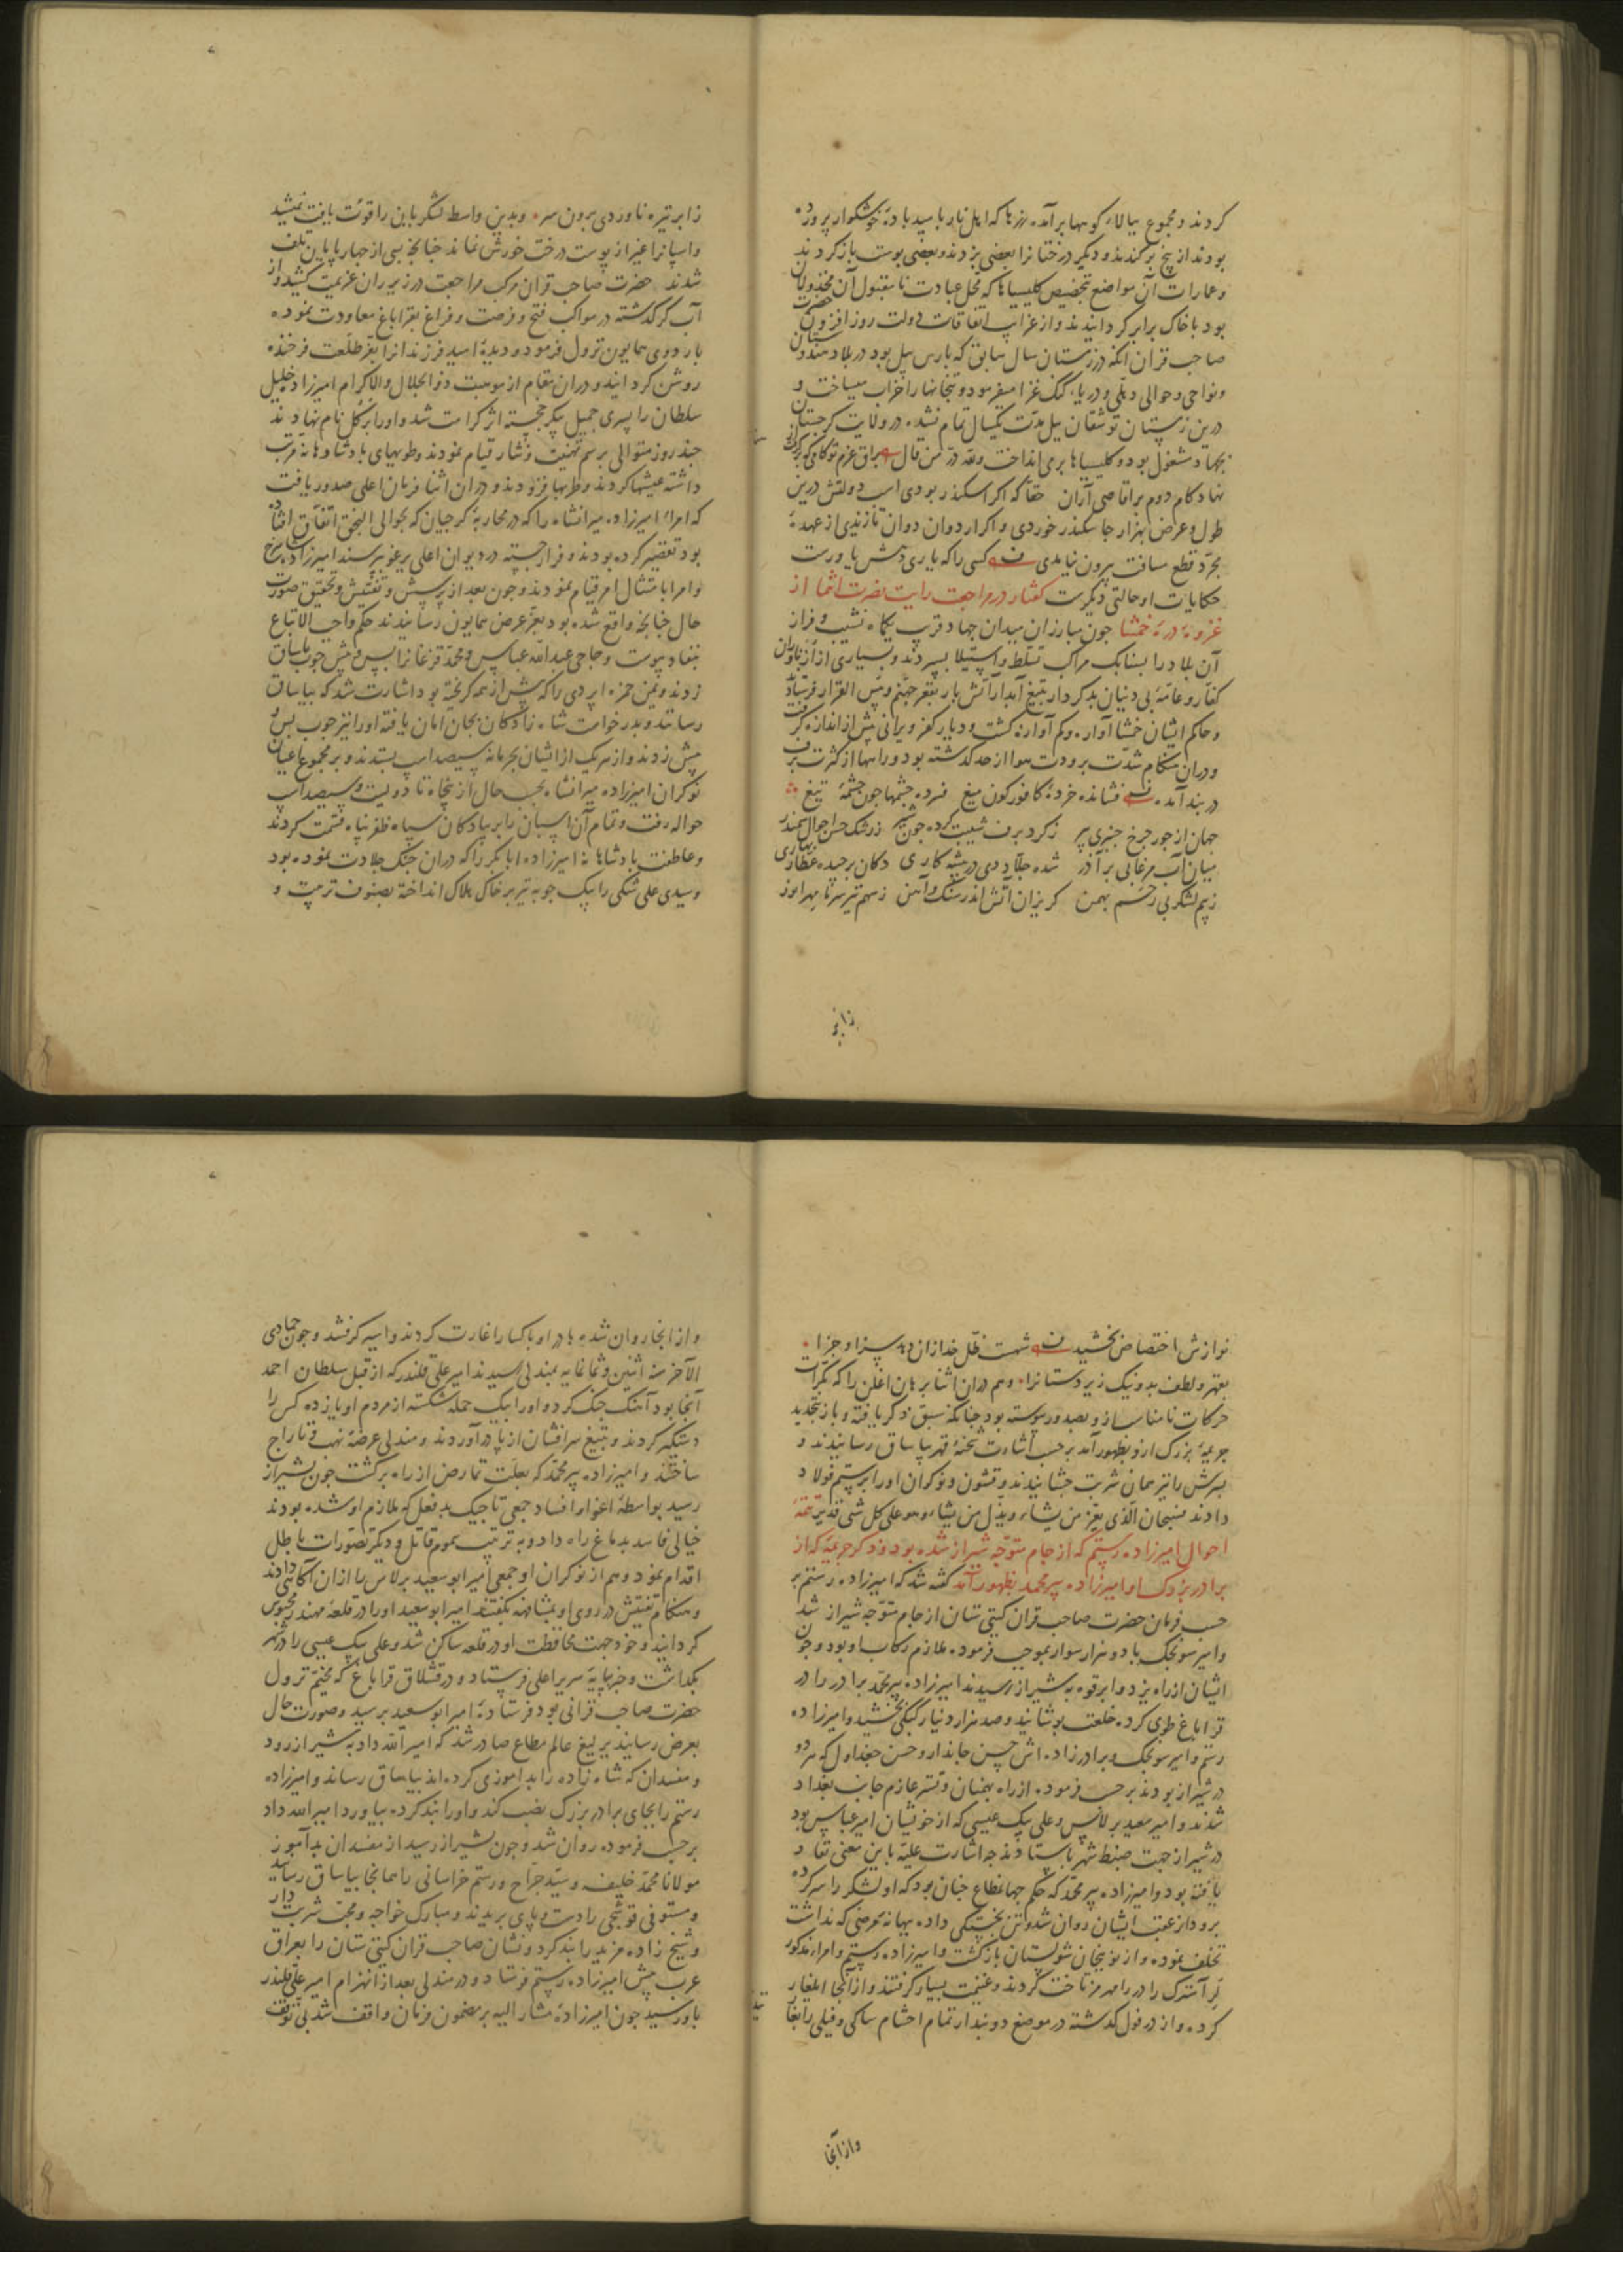 کردند و مجموع ببالاء کوهها برآمده رزها که اهل نار بامید بادهٔ خوشکوار پرورده
بودند از بیخ برکندند و دیکر درختانرا بعضی بزدند و بعضی پوست باز کردند
و عمارات آن مواضع بتخصیص کلیسیاها که محل عبادت نامقبول آن مخذولان
بود با خاک برابر کردانیدند و از غرایب اتفاقات دولت روز افزون حضرت
صاحب قران آنکه در زمستان سال سابق که بارس ییل بود در بلاد هندوستان
و نواحی و حوالی دهلی و دریاء کنک غزا میفرمود و بتخانها را خراب میساخت و
درین زمستان توشقان ییل مدت یکسال تمام نشده در ولایت کرجستان
بجهاد مشغول بود و کلیسیاها برمی انداخت ولله در من قال براق عزم تو کامی که برکرفت
نهاد کام دوم بر اقاصی آران حقا که اکر اسکندر بودی اسب دولتش درین
طول و عرض هزار جا سکندر خوردی و اکر اردوان دوان تازندی از عهدهٔ
مجرد قطع مسافت بیرون نیامدی کسی را که یاری دهش یاورست
حکایات او حالتی دیکرست کفتار در مراجعت رایت نصرت انتما از
غزوهٔ درهٔ خمشا جون مبارزان میدان جهاد قریب یکماه نشیب و فراز
آن بلاد را بسنابک مراکب تسلط و استیلا بسپردند و بسیاری از ازناوران
کفار و عامهٔ بی دینان بدکردار بتیغ آبدار آتش بار بقعر جهنم و بئس القرار فرستاد
و حاکم ایشان خمشا آواره و کم آوازه کشت و دیار کفر ویرانی بیش از اندازه کرفت
و دران هنکام شدت برودت هوا از حد کذشته بود و راهها از کثرت برف
در بند آمده فشانده خردهٔ کافور کون میغ فسرده جشمها جون جشمهٔ تیغ
جهان از جور جرخ جنبری پیر ز کرد برف شیبت کرده جون شیر ز رشک حسن احوال سمندر
میان آب مرغابی بر آذر شده جلاد دی در پیشه کاری دکان برجیده عطار بهاری
ز بیم لشکر بی رحم بهمن کریزان آتش اندر سنک و آهن ز سهم تیر سرما مهر انور
ز ابر
ز ابر تیره ناوردی برون سر وبدین واسطه لشکریان را قوت یافت نمیشد
و اسپانرا غیر از پوست درخت خورش نماند جنانجه بسی از جهارپایان تلف
شدند حضرت صاحب قران مرکب مراجعت در زیر ران عزیمت کشید و از
آب کر کذشته در مواکب فتح و فرصت و فراغ بقراباغ معاودت نموده
باردوی همایون نزول فرمود و دیدهٔ امید فرزندانرا بفر طلعت فرخنده
روشن کردانید و دران مقام از موهبت ذوالجلال والاکرام امیرزاده خلیل
سلطان را پسری جمیل پیکر خجسته اثر کرامت شد و او را برکل نام نهادند
جند روز متوالی برسم تهنیت و نثار قیام نمودند و طویهای پادشاهانه مرتب
داشته عیشها کردند و طربها فزودند و دران اثنا فرمان اعلی صدور یافت
که امراء امیرزاده میرانشاه را که در محاربهٔ کرجیان که بحوالی النجق اتفاق افتاده
بود تقصیر کرده بودند و فرار جسته در دیوان اعلی یرغو بپرسند امیرزاده شاهرخ
و امرا بامتثال امر قیام نمودند و جون بعد از پرسش و تفتیش و تحقیق صورت
حال جنانجه واقع شده بود بعز عرض همایون رسانیدند حکم واجب الاتباع
بنفاد پیوست و حاجی عبدالله عباس و محمد قزغانرا پس و پیش جوب یاساق
زدند و یمن حمزه اپردی را که پیش از همه کریخته بود اشارت شد که بیاساق
رسانند و بدرخواست شاه زادکان بجان امان یافته او را نیز جوب پس و
پیش زدند و از هر یک از ایشان بجرمانه سیصد اسپ بستدند و بر مجموع اعیان
نوکران امیرزاده میرانشاه بحسب حال از پنجاه تا دویست و سیصد اسپ
حواله رفت و تمام آن اسپان را بر پیادکان سپاه ظفر پناه قسمت کردند
و عاطفت پادشاهانه امیرزاده ابابکر را که دران جنک جلادت نموده بود
و سیدی علی شکی را بیک جوبه تیر بر خاک هلاک انداخته بصنوف تربیت و
نوازش اختصاص بخشید شهست ظل خدا زان دهد سزا و جزا
بقهر و لطف بد و نیک زیردستانرا وهم دران اثنا برهان اغلن را که بکرات
حرکات نامناسب ازو بصدور پیوسته بود جنانکه سبق ذکر یافته و باز بتجدید
جریمهٔ بزرک ازو بظهور آمد برحسب اشارت شحنهٔ قهر بیاساق رسانیدند و
پسرش را نیز همان شربت جشانیدند و قشون و نوکران او را برستم فولاد
دادند فسبحان الذی یعز من یشاء ویذل من یشاء وهو علی کل شیء قدیر تتمهٔ
احوال امیرزاده رستم که از جام متوجه شیراز شده بود و ذکر جریمهٔ که از
برادر بزرک او امیرزاده پیرمحمد بظهور آمد کفته شد که امیرزاده رستم بر
حسب فرمان حضرت صاحب قران کیتی ستان از جام متوجه شیراز شد
و امیر سونجک با دو هزار سوار بموجب فرموده ملازم رکاب او بود و جون
ایشان از راه یزد و ابرقوه بشیراز رسیدند امیرزاده پیرمحمد برادر را در
قراباغ طوی کرده خلعت پوشانید و صد هزار دینار کبکی بخشید و امیرزاده
رستم و امیر سونجک و برادرزاده اش حسن جاندار و حسن جغداول که هر دو
در شیراز بودند برحسب فرموده از راه بهبهان و تستر عازم جانب بغداد
شدند و امیر سعید برلاس و علی بیک عیسی که از خویشان امیر عباس بود
در شیراز جهت ضبط شهر باستادند جه اشارت علیه باین معنی نفاد
یافته بود و امیرزاده پیرمحمد که حکم جهانمطاع جنان بود که او لشکر را سر کرده
برود از عقب ایشان روان شد و تن بخستکی داده ببهانه مرضی که نداشت
تخلف نموده و از نوبنجان شولستان بازکشت و امیرزاده رستم و امراء مذکور
لر آستدک را در رامهرمز تاخت کردند و غنیمت بسیار کرفتند و از آنجا ایلغار
کرده و از دزفول کذشته در موضع دوبندار تمام احشام ساکی و فیلی را بغا
و از آنجا
و از انجا روان شده بادرا و باکسایا را غارت کردند و اسیر کرفتند و جون جمادی
الآخر سنه اثنین و ثمانمایه بمندلی رسیدند امیر علی قلندر که از قبل سلطان احمد
آنجا بود آهنک جنک کرد و او را بیک حمله شکسته از مردم او پانزده کس را
دستکیر کردند و بتیغ سرافشان از پا درآوردند و مندلی عرضهٔ نهب و تاراج
ساختند و امیرزاده پیرمحمد که بعلت تمارض از راه برکشت جون بشیراز
رسید بواسطهٔ اغوا و افساد جمعی تاجیک بدفعل که ملازم او شده بودند
خیالی فاسد بدماغ راه داد و به ترتیب سموم قاتل و دیکر تصورات باطل
اقدام نمود و هم از نوکران او جمعی امیر ابوسعید برلاس را از ان آکاهی دادند
و هنکام تفتیش در روی او بمشافهه بکفتند امیر ابوسعید او را در قلعهٔ مهندر محبوس
کردانید و خود جهت محافظت او در قلعه ساکن شد و علی بیک عیسی را در شهر
بکذاشت و خبر بپایهٔ سریر اعلی فرستاد و در قشلاق قراباغ که مخیم نزول
حضرت صاحب قرانی بود فرستادهٔ امیر ابوسعید برسید و صورت حال
بعرض رسانید یرلیغ عالم مطاع صادر شد که امیر الله داد به شیراز رود
و مفسدان که شاه زاده را بدآموزی کرده اند بیاساق رساند و امیرزاده
رستم را بجای برادر بزرک نصب کند و او را بند کرده بیاورد امیر الله داد
برحسب فرموده روان شد و جون بشیراز رسید از مفسدان بدآموز
مولانا محمد خلیفه و سید جراح و رستم خراسانی را همانجا بیاساق رسانید
و مستوفی قوشجی را دست و پای بریدند و مبارک خواجه و محب شربت دار
و شیخ زاده مزید را بند کرد و نشان صاحب قران کیتی ستان را بعراق
عرب پیش امیرزاده رستم فرستاد و در مندلی بعد از انهزام امیر علی قلندر
باو رسید جون امیرزادهٔ مشار الیه بر مضمون فرمان واقف شد بی توقف